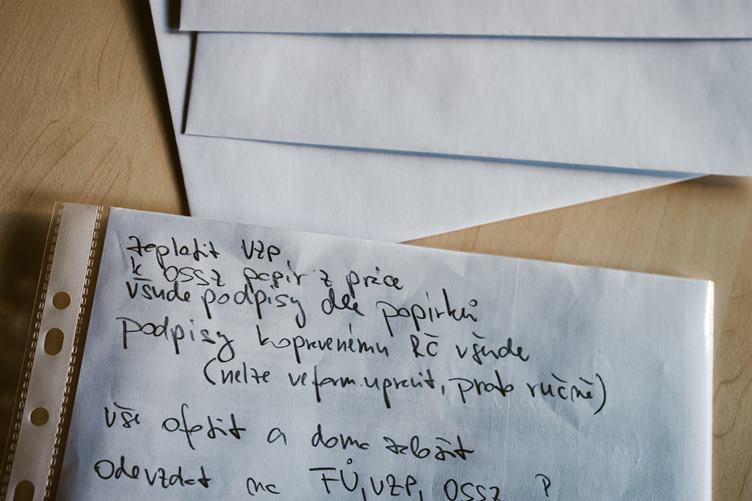 zaplatit VZP,
k OSSZ papír z práce
všude podpisy dle papírků
podpisy k opravenému RČ všude
(nelze ve form. upravit, proto ručně)
vše ofotit a doma založit
odevzdat na FÚ, VZP, OSSZ